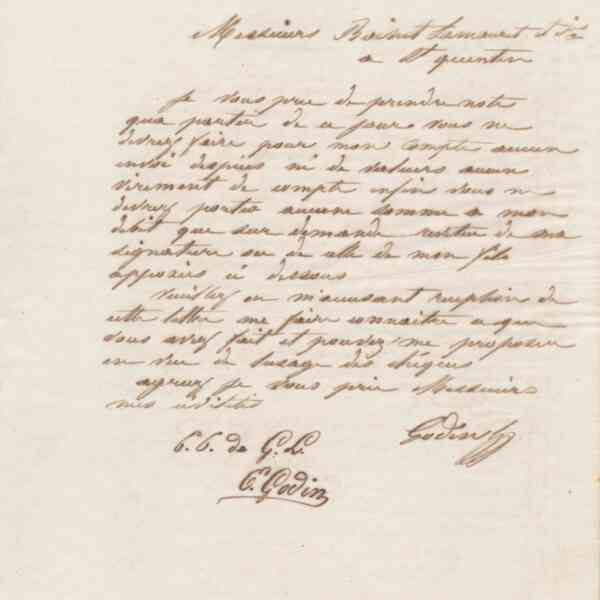 Messieurs Boinet Lamouret et Cie
a St quentin
je vous prie de prendre note
qua partir de ce jour vous ne
devrez faire pour mon compte aucun
envoi despèces ni de valeurs aucun
virement de compte enfin vous ne
devrez porter aucune somme a mon
débit que sur demande revêtue de ma
signature ou de celle de mon fils
apposées ci dessous
Veuillez en m'accusant reception de
cette lettre me faire connaitre ce que
vous avez fait et pouvez me proposer
en vue de lusage des chèques
agreez je vous prie Messieurs
mes civilités
Godin
E. G. de G. L.
E. Godin